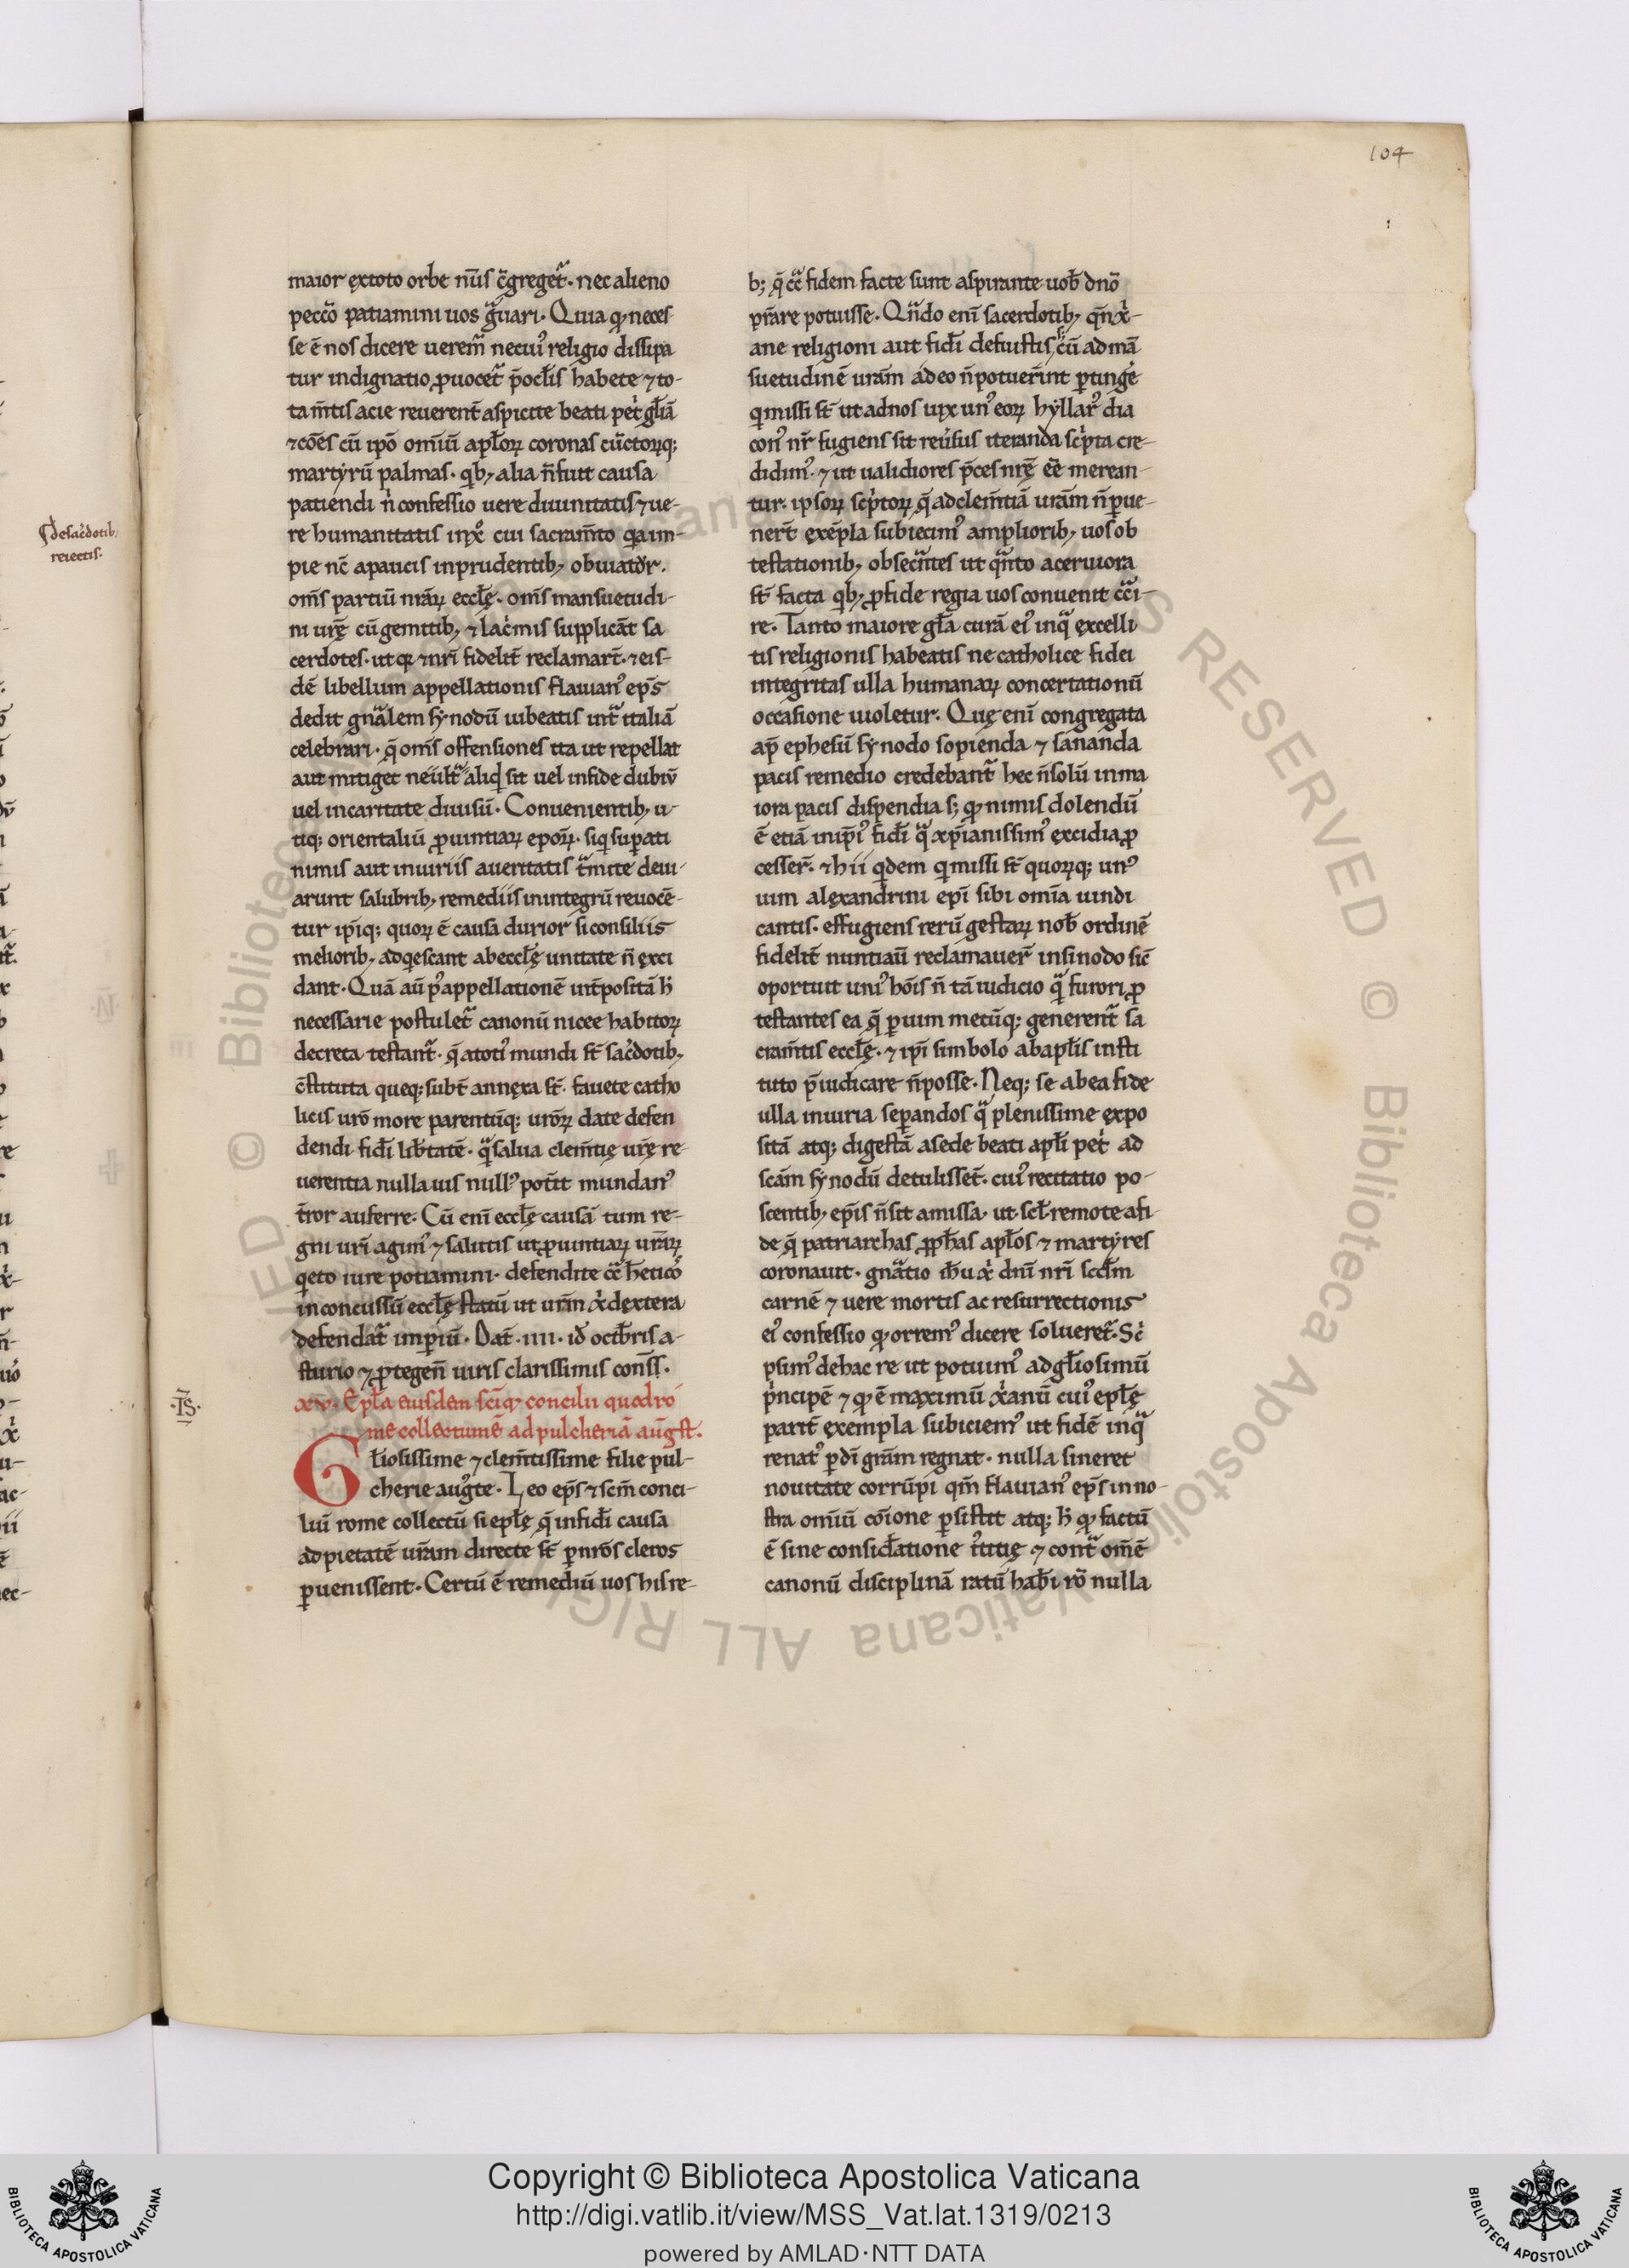 104
maior ex toto orbe nu͞s c̄greget᷑. nec alieno
pecc̄o patiamini uos g̃uari. Quia qꝫ neces-
se ē nos dicere ueremᷓ ne cui᷒ religio dissipa
tur indignatio ꝓuocet᷑ p̄oc̄lis habete ⁊ to-
ta m̄tis acie reuerent̄ aspicite beati pet̕ gl̄iā
⁊ cōes cū ip̄o omīū ap̄loꝝ coronas cūctorꝝqꝫ
martyrū palmas. qͥbꝫ alia n̄ fuit causa
patiendi n̕ confessio uere diuinitatis ⁊ ue-
re humanitatis in xp̄o cui sacram̄to qa im-
pie nc̄ a paucis inprudentibꝫ obuiat᷑.
om̄s partiū nrāꝝ eccl̄ę. om̄s mansuetudi-
ni ur̄ę cū gemitibꝫ ⁊ lac̕mis supplicāt sa
cerdotes. ut qꝫ ⁊ nr̄i fidelit̄ reclamar̄t. ⁊ eis-
dē libellum appellationis flauian᷒ ep̄s
dedit gn̄alem synodū iubeatis int᷑ italiā
celebrari. q̄ om̄s offensiones ita ut repellat
aut mitiget ne ult᷑ aliqͩ sit uel in fide dubiū
uel in caritate diuisū. Conuenientibꝫ u-
tiqꝫ orientaliū ꝓuintiaꝝ ep̄oꝝ. siqͥ suꝑati
nimis aut iniuriis a ueritatis t᷑mite deui-
arunt salubribꝫ remediis in integrū reuocē-
tur ip̄iqꝫ quoꝝ ē causa durior si consiliis
meliorib; adqͥescant ab eccl̄ę unitate n̄ exci
dant. Quā aū p᷒ appellationē int̄positā h̄
necessarie postulet᷑ canonū nicee habitoꝝ
decreta testant᷑. q̄ a toti᷒ mundi st̄ sac̕dotibꝫ
c̄stituta queqꝫ subt̄ annexa st̄. fauete catho
licis ur̄o more parentūqꝫ ur̄oꝝ date defen
dendi fid̄i lib̄tatē. qͣ salua clem̄tię ur̄ę re-
uerentia nulla uis null᷒ pot̄it mundan᷒
t̄ror auferre. Cū eni᷒ eccl̄ę causā tum re-
gni ur̄i agim᷒ ⁊ salutis ut ꝓuintiaꝝ ur̄aꝝ
qͥeto iure potiamini. defendite cͨ h̄eticos
inconcussū eccl̄ę statū ut ur̄m xp̄i dextera
defendat᷑ imꝑiū. Dat̄. iiii. id̄ octb̄ris a-
sturio ⁊ ꝓtegen̄ uiris clarissimis cons̄s.
xv. Ep̄la eiusdem sc̄iqꝫ concilii quod ro
me collectum ē ad pulcheriā auḡst.
Gl̄iosissime ⁊ clem̄tissime filie pul-
cherie aug᷒te. Leo ep̄s ⁊ sc̄m conci-
liū rome collectū si ep̄lę q̄ in fid̄i causa
ad pietatē ur̄am directe st̄ ꝑ nr̄os cleros
ꝑuenissent. Certū ē remediū uos his re-
b; q̄ cͨ fidem facte sunt aspirante uob̄ dn̄o
pr̄are potuisse. Qn̄do eni᷒ sacerdotibꝫ qn̄ xp̄i-
ane religioni aut fid̄i defuistis cū ad mā
suetudinē urām adeo n̄ potuer̄int ꝑting̕e
qͥ missi st̄ ut ad nos uix un᷒ eoꝝ hyllar᷒ dia
con᷒ nr̄ fugiens sit reu̕sus iteranda sc̕pta cre-
didim᷒. ⁊ ut ualidiores p̄ces nr̄ę ēē merean-
tur. ipsoꝝ sc̕ptoꝝ q̄ ad clem̄tiā urām n̄ ꝑue-
ner̄t exēpla subiecim᷒ ampliorib; uos ob
testationibꝫ obsec̄ntes ut qn̄to aceruiora
st̄ facta qͥbꝫ ꝓ fide regia uos conuenit cͨi-
re. Tanto maiore gl̄a curā ei᷒ in qͣ excelli
tis religionis habeatis ne catholice fidei
integritas ulla humanaꝝ concertationū
occasione uioletur. Quę eni᷒ congregata
ap̄ ephesū synodo sopienda ⁊ sananda
pacis remedio credebant᷑ hec n̄ solū in ma
iora pacis dispendia sꝫ qꝫ nimis dolendū
ē etiā in ip̄i᷒ fid̄i qͣ xp̄ianissim᷒ excidia ꝓ
cesser̄. ⁊ hii qͥdem qͥ missi st̄ quoꝝqꝫ un᷒
uim alexandrini ep̄i sibi om̄ia uindi
cantis. effugiens rerū gestaꝝ nob̄ ordinē
fidelit̄ nuntiaū reclamauer̄ in sinodo sic̄
oportuit uni᷒ hōis n̄ tā iudicio qͣ furori ꝓ
testantes ea q̄ ꝑ uim metūqꝫ generent᷑ sa
cram̄tis eccl̄ę. ⁊ ip̄i simbolo ab ap̄lis insti
tuto p̄iudicare n̄ posse. Neqꝫ se ab ea fide
ulla iniuria seꝑandos qͣ plenissime expo
sitā atqꝫ digestā a sede beati ap̄li pet̕ ad
sc̄am synodū detulisset̄. cui᷒ recitatio po-
scentibꝫ ep̄is n̄ sit amissa. ut scl̄ remote a fi-
de q̄ patriarchas ꝓph̄as ap̄los ⁊ martyres
coronauit. gn̄atio ih̄u xp̄i dn̄i nr̄i sc̄dm
carnē ⁊ uere mortis ac resurrectionis
ei᷒ confessio qꝫ orrem᷒ dicere solueret᷑. Sc̕
psim᷒ de hac re ut potuim᷒ ad gl̄iosimū
p̕ncipē ⁊ qꝫ ē maximū xp̄ianū cui᷒ ep̄lę
parit̄ exempla subiciem᷒ ut fidē in qͣ
renat᷒ ꝑ dī grām regnat. nulla sineret
nouitate corrūpi qm̄ flauian᷒ ep̄s in no-
stra omīū cōione ꝑsistit atqꝫ h̄ qꝫ factū
ē sine consid̄atione i᷒titię ⁊ cont᷑ om̄ē
canonū disciplinā ratū hab̄i rō nulla
de sac̕dotibꝫ
reiectis.
.IS.
Copyright © Biblioteca Apostolica Vaticana
http://digi.vatlib.it/view/MSS_Vat.lat.1319/0213
powered by AMLAD·NTT DATA
BIBLIOTECA APOSTOLICA VATICANA
BIBLIOTECA APOSTOLICA VATICANA
© Biblioteca Apostolica Vaticana ALL RIGHTS RESERVED